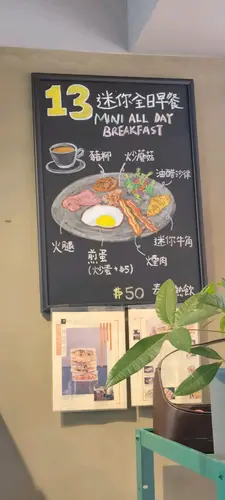 13 迷你全日早餐
MINI ALL DAY
BREAKFAST
豬柳 炒蘑菇
油醋沙律
火腿
煎蛋
(炒蛋+$5)
迷你牛角
煙肉
$50
熱飲